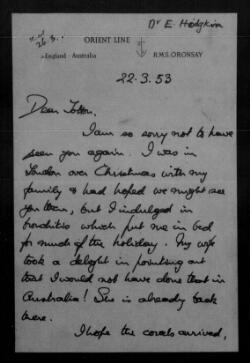 Dr E. Hodgkin
26.3.
ORIENT LINE
England - Australia
R.M.S. ORONSAY
22.3.53
Dear Totton,
I am so sorry not to have
seen you again. I was in
London over Christmas with my
family & had hoped we might see
you then, but I indulged in
bronchitis which put me in bed
for much of the holiday. My wife
took a delight in pointing out
that I would not have done that in
Australia! She is already back
there.
I hope the corals arrived,